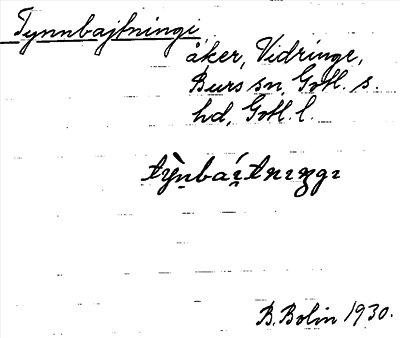 Tynnbajtningi
åker, Vidringe,
Burs sn, Gotl. s.
hd, Gotl. l.
tỳn̥baí̯tnıŋgı
B. Bolin 1930.